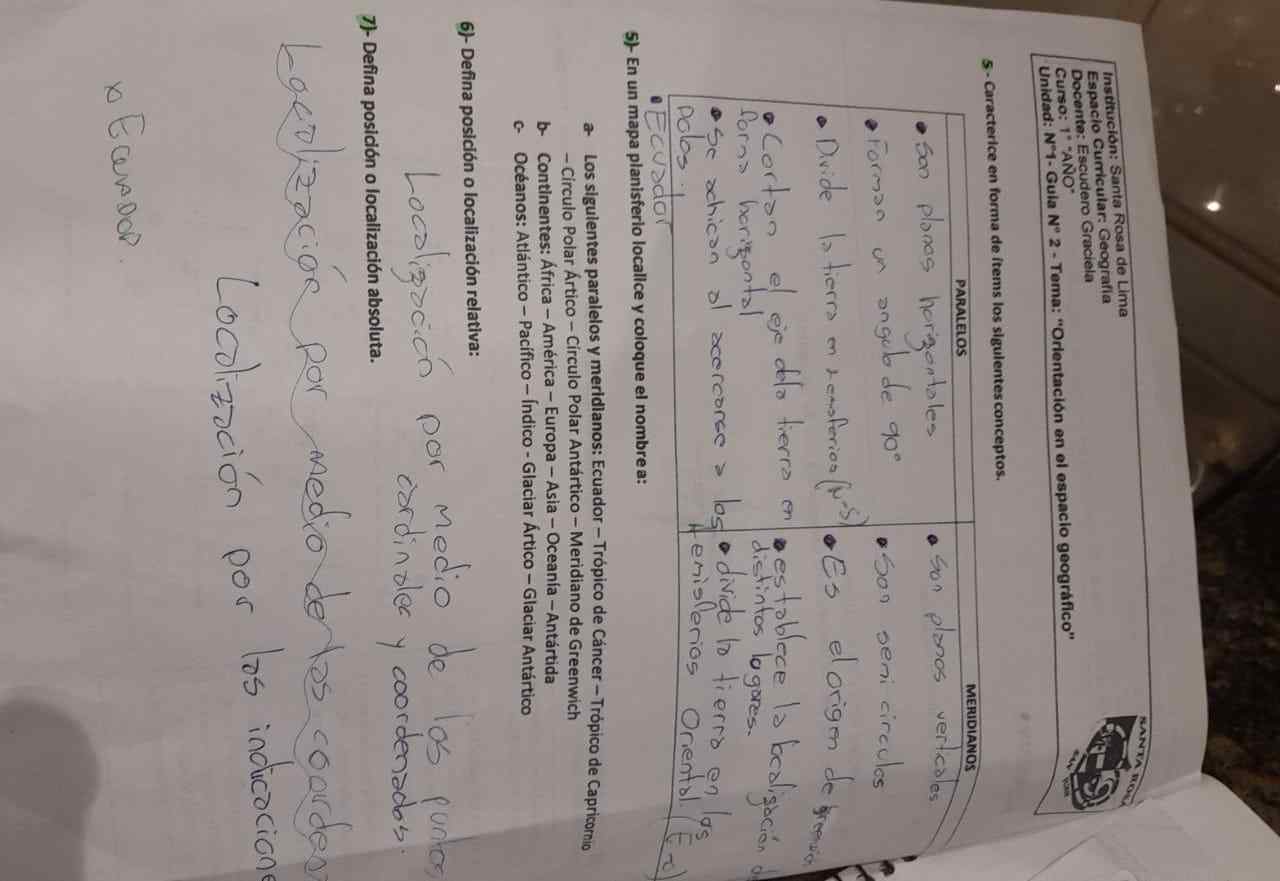 Institución: Santa Rosa de Lima
Espacio Curricular: Geografía
Docente: Escudero Graciela
Curso: 1° "AÑO"
Unidad: N°1- Guia N° 2 - Tema: "Orientación en el espacio geográfico"
SANTA ROSA
5 - Caracterice en forma de ítems los siguientes conceptos.
PARALELOS
• Son planos horizontales
• Forman un angulo de 90°
• Divide la tierra en hemisferios (N-S)
• Cortan el eje dela tierra en
forma horizontal
• Se achican al acercarse a los
polos.
• Ecuador
MERIDIANOS
• Son planos verticales
• Son semi circulos
• Es el origen de greenwich
• establece la localización d
distintos lugares.
• divide la tierra en los
Hemisferios Oriental (E
5)- En un mapa planisferio localice y coloque el nombre a:
a- Los siguientes paralelos y meridianos: Ecuador – Trópico de Cáncer – Trópico de Capricornio
– Círculo Polar Ártico – Círculo Polar Antártico – Meridiano de Greenwich
b- Continentes: África – América – Europa – Asia – Oceanía – Antártida
c- Océanos: Atlántico – Pacífico – Índico - Glaciar Ártico – Glaciar Antártico
6)- Defina posición o localización relativa:
Localización por medio de los puntos
cardinales y coordenadas.
7)- Defina posición o localización absoluta.
Localización por medio de
Localización por los indicacione
x Ecuador.